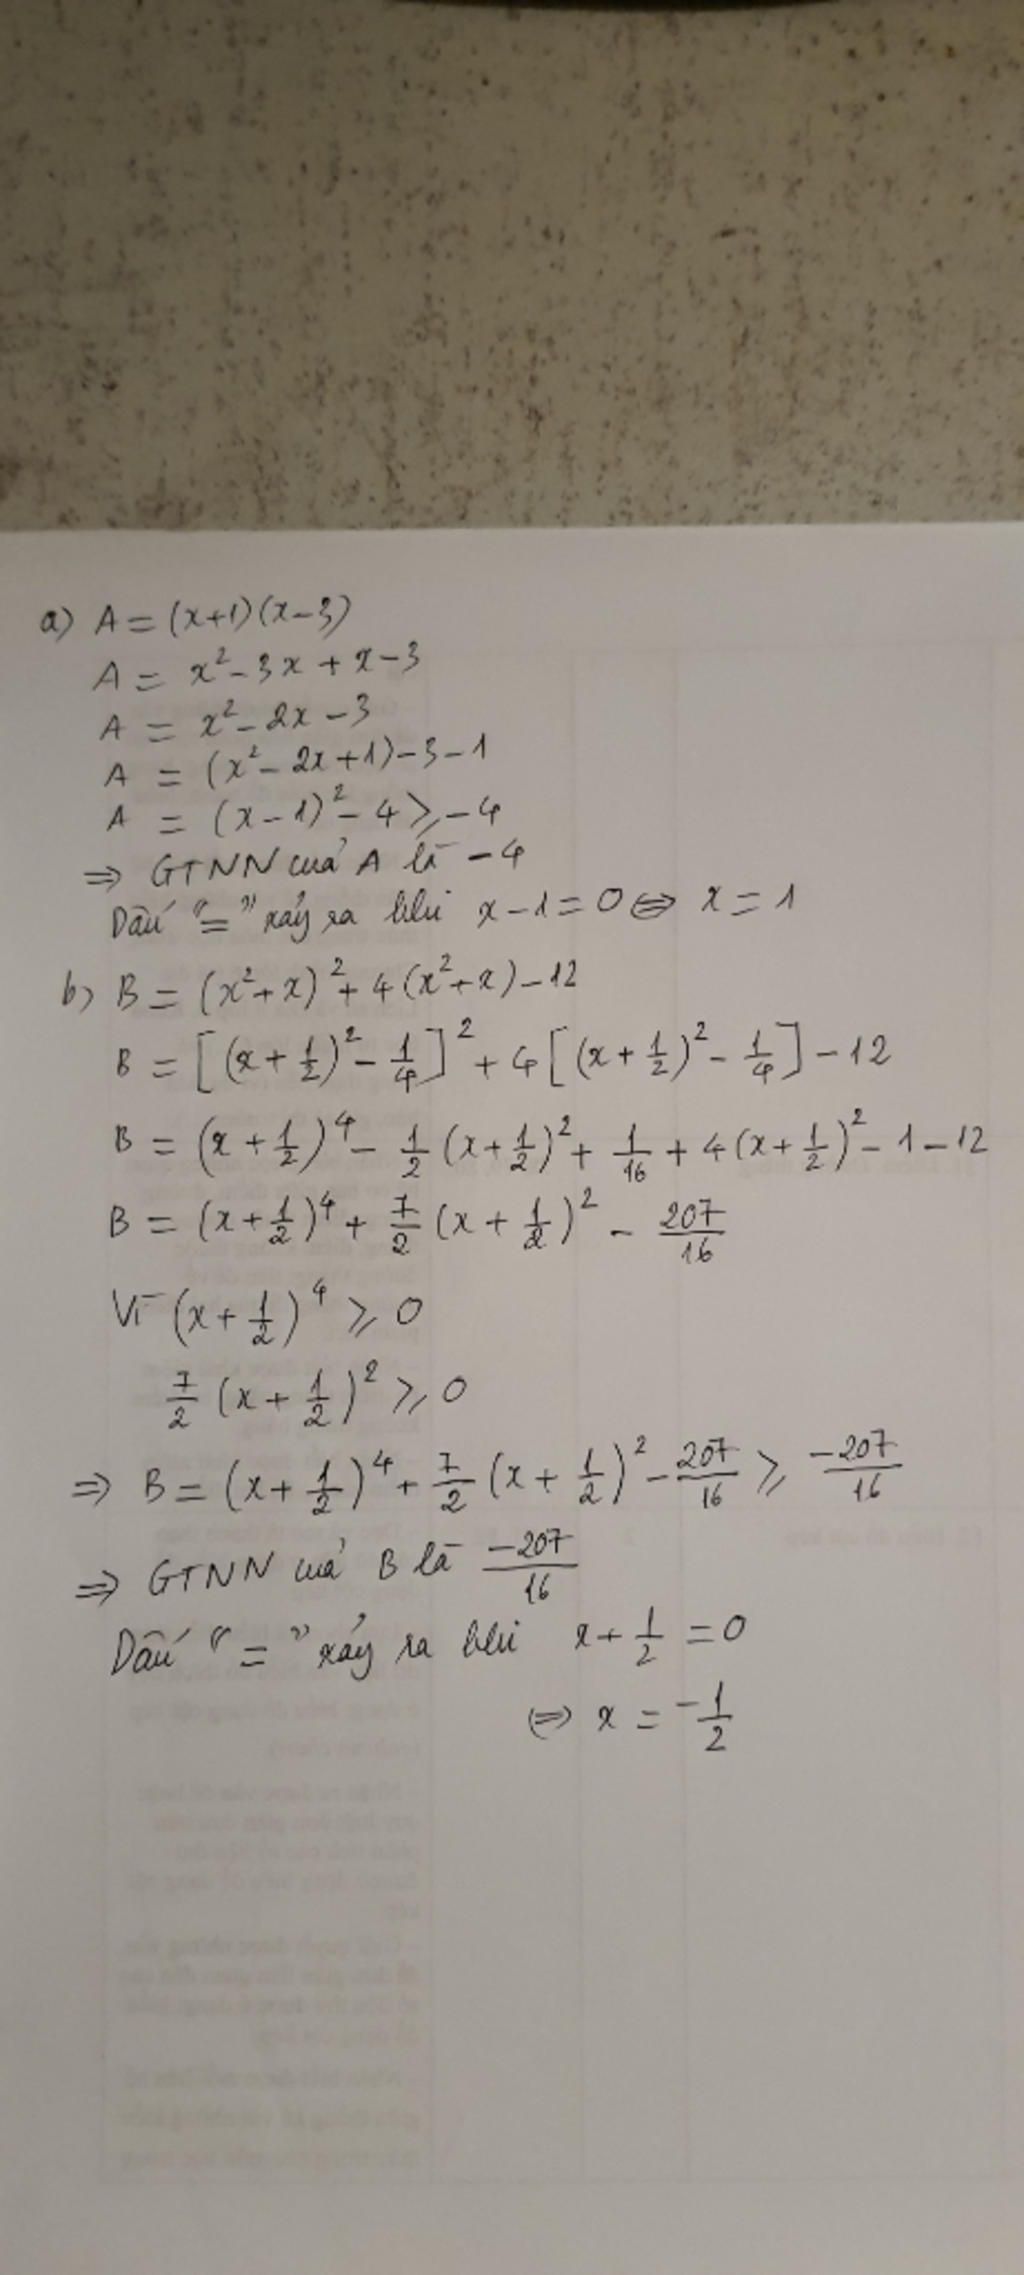 a) A = (x+1)(x-3)
A = x² - 3x + x - 3
A = x² - 2x - 3
A = (x² - 2x + 1) - 3 - 1
A = (x - 1)² - 4 ⩾ -4
⇒ GTNN của A là -4
Dấu "=" xảy ra khi x - 1 = 0 ⇔ x = 1
b) B = (x² + x)² + 4(x² + x) - 12
B = [(x + 1/2)² - 1/4]² + 4[(x + 1/2)² - 1/4] - 12
B = (x + 1/2)⁴ - 1/2 (x + 1/2)² + 1/16 + 4(x + 1/2)² - 1 - 12
B = (x + 1/2)⁴ + 7/2 (x + 1/2)² - 207/16
Vì (x + 1/2)⁴ ⩾ 0
7/2 (x + 1/2)² ⩾ 0
⇒ B = (x + 1/2)⁴ + 7/2 (x + 1/2)² - 207/16 ⩾ -207/16
⇒ GTNN của B là -207/16
Dấu "=" xảy ra khi x + 1/2 = 0
⇔ x = -1/2